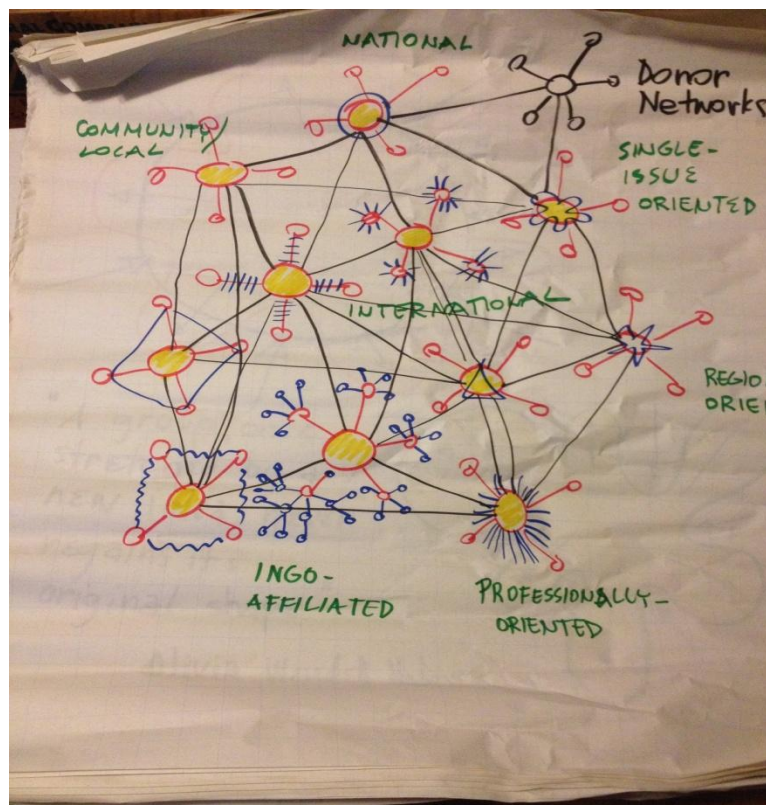 NATIONAL
Donor
Networks
COMMUNITY/
LOCAL
SINGLE-
ISSUE
ORIENTED
INTERNATIONAL
REGIO
ORIE
INGO-
AFFILIATED
PROFESSIONALLY-
ORIENTED